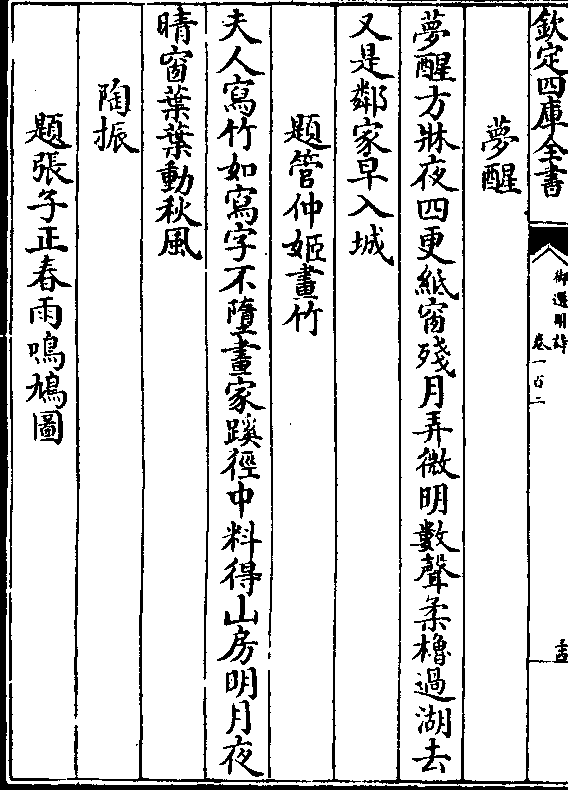 欽定四庫全書
御選明詩
卷一百二
夢醒
夢醒方牀夜四更紙窗殘月弄微明數聲柔櫓過湖去
又是鄰家早入城
題管仲姬畫竹
夫人寫竹如寫字不墮畫家蹊徑中料得山房明月夜
晴窗葉葉動秋風
陶振
題張子正春雨鳴鳩圖